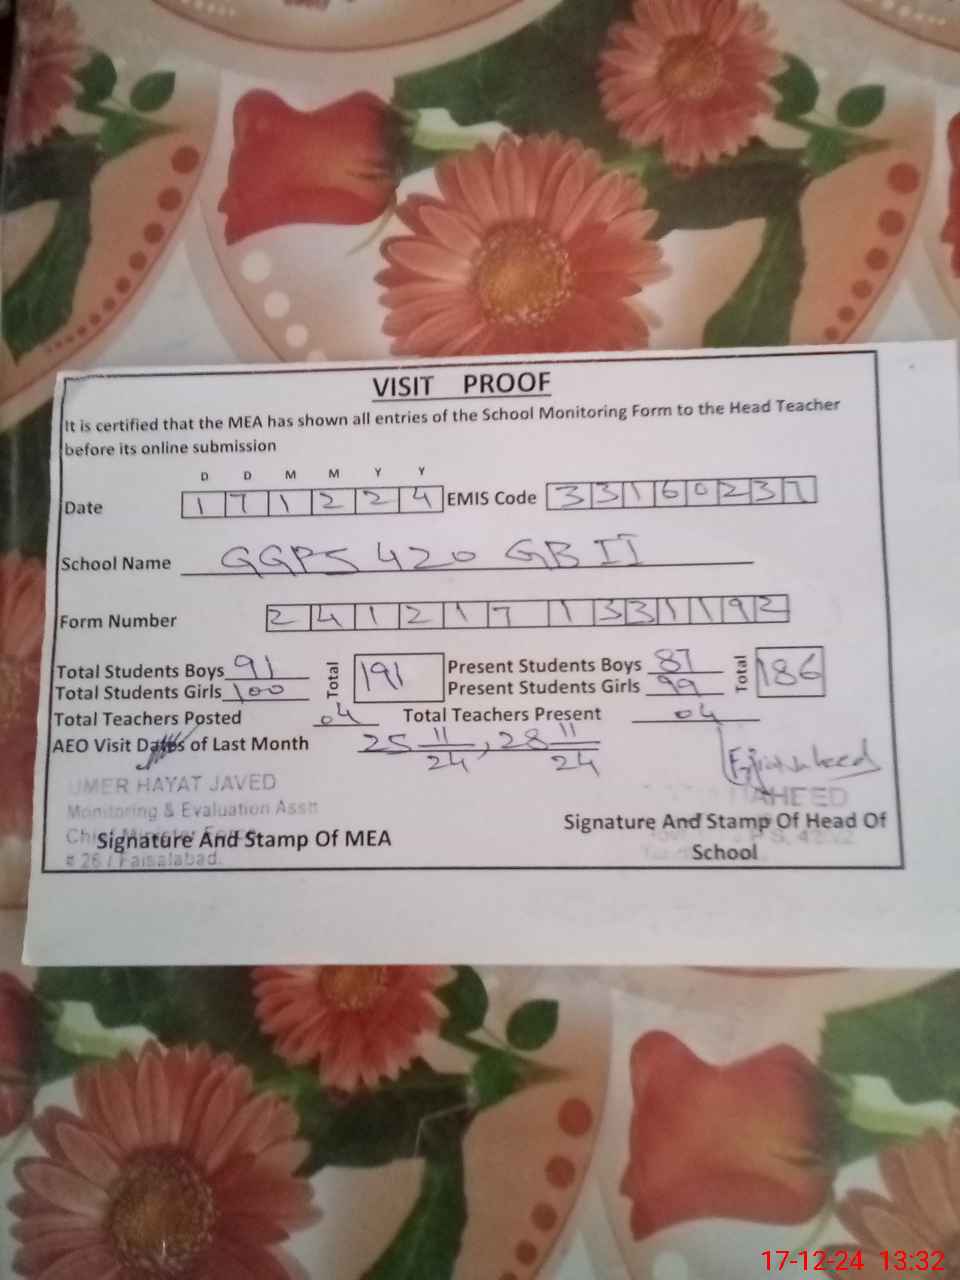 VISIT PROOF
It is certified that the MEA has shown all entries of the School Monitoring Form to the Head Teacher
before its online submission
D D M M Y Y
Date 171224 EMIS Code 33160237
School Name GGPS 420 GB II
Form Number 2412171331192
Total Students Boys 91 Total 191 Present Students Boys 87 Total 186
Total Students Girls 100 Present Students Girls 99
Total Teachers Posted 04 Total Teachers Present 04
AEO Visit Dates of Last Month 25 11/24, 28 11/24
UMER HAYAT JAVED
Monitoring & Evaluation Asstt
AHEED
Signature And Stamp Of MEA
Signature And Stamp Of Head Of
School
# 26 / Faisalabad.
17-12-24 13:32